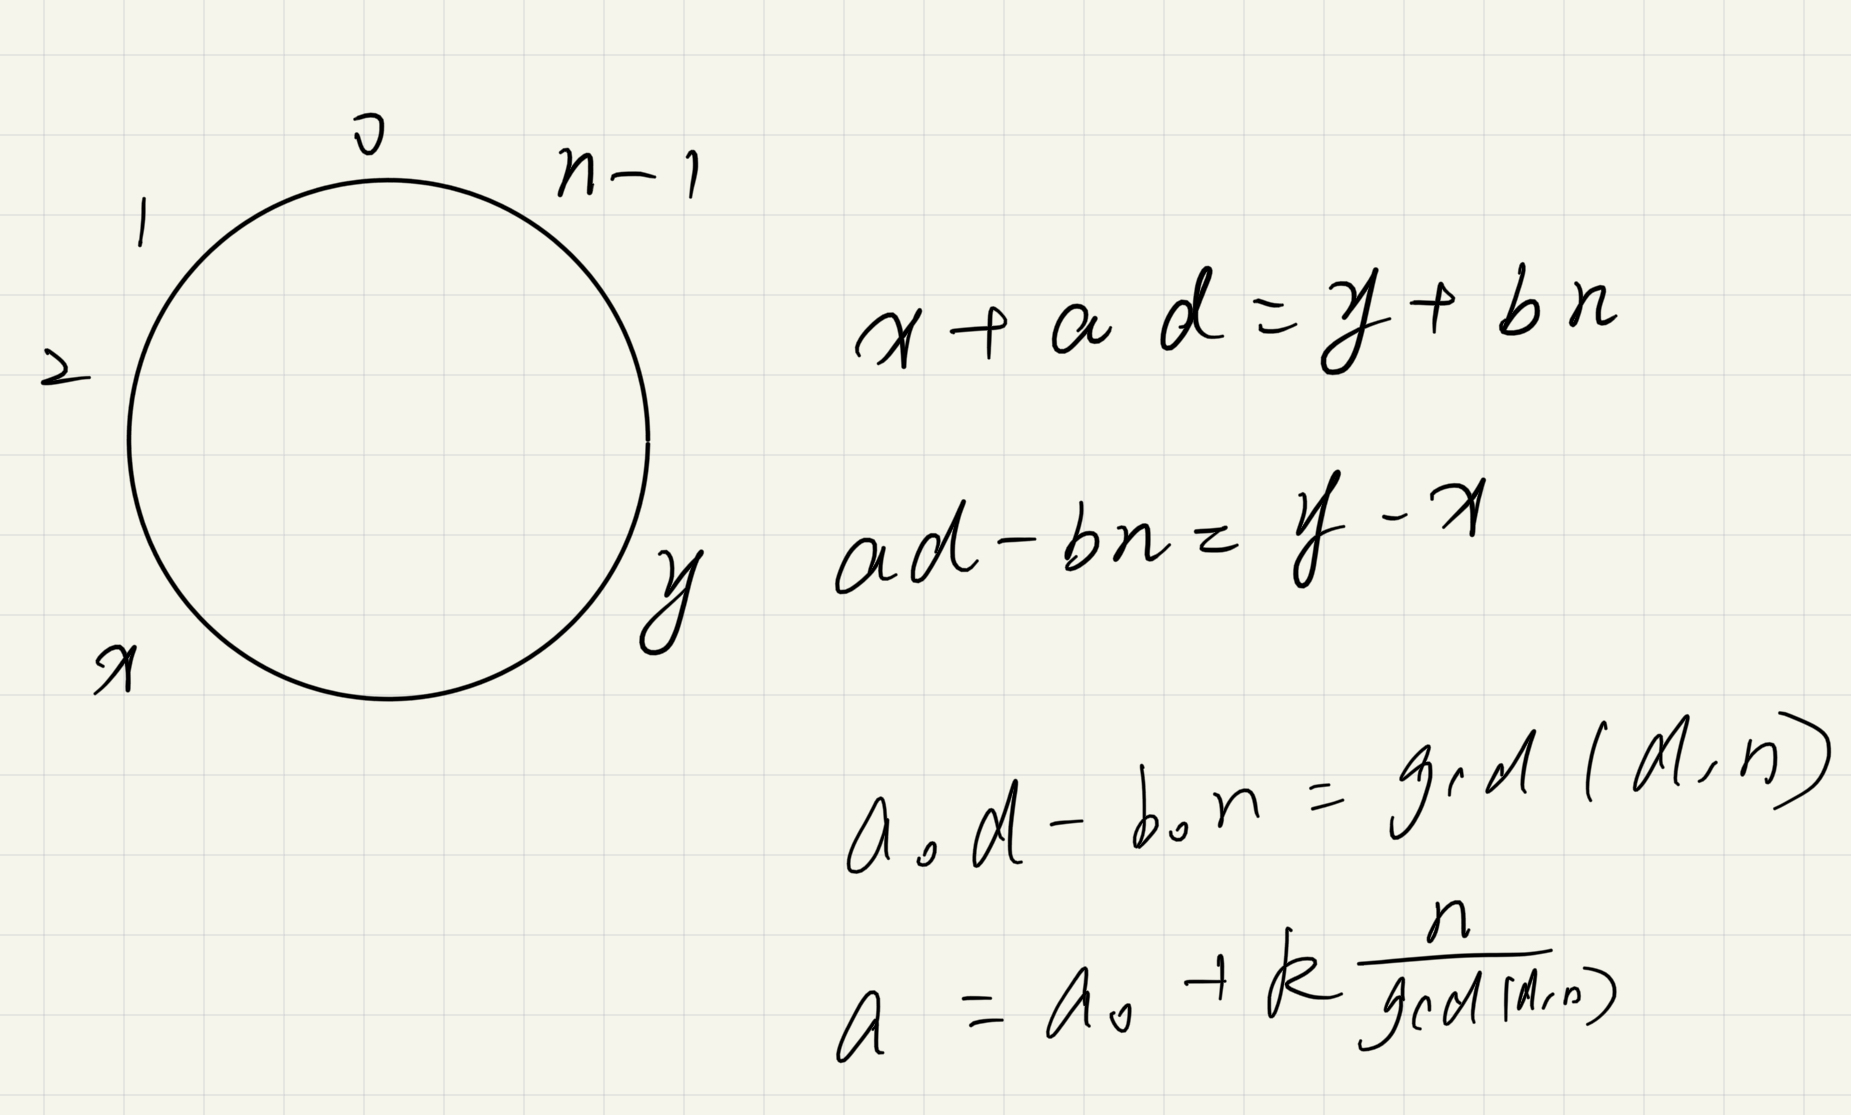 0
n-1
1
2
x
y
x + a d = y + bn
ad - bn = y - x
a₀d - b₀n = gcd(d,n)
a = a₀ + k n/gcd(d,n)